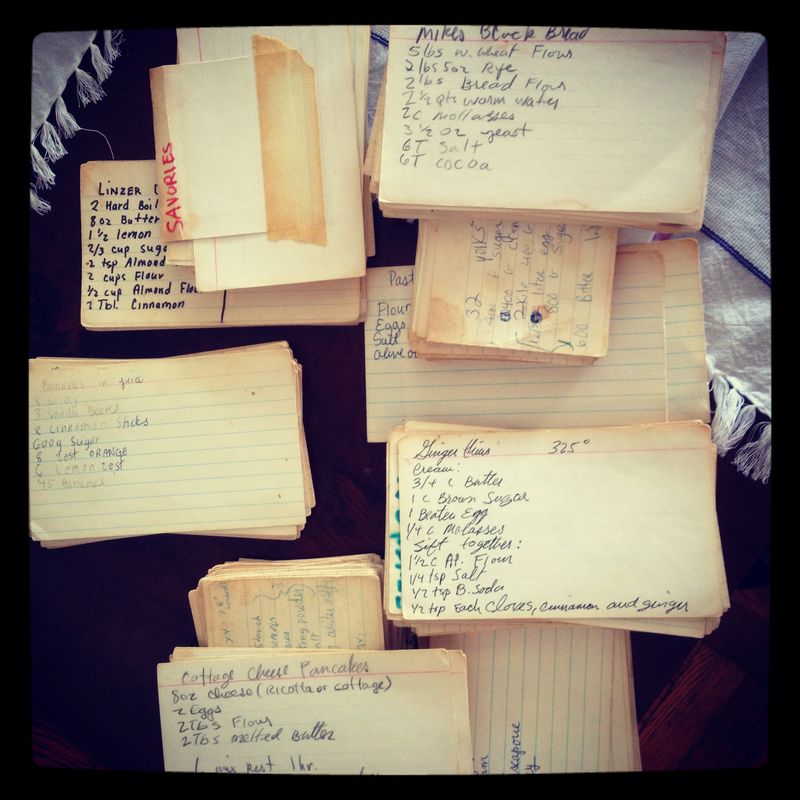 Mikes Black Bread
5 lbs w. wheat Flour
2 lbs 5oz Rye
2 lbs Bread Flour
2 1/2 qts warm water
2c Mollasses
3 1/2 oz yeast
6T Salt
6T cocoa
SAVORIES
LINZER
2 Hard Boil
8 oz Butter
1 1/2 lemon
2/3 cup suga
2 tsp Almond
2 cups Flour
1/2 cup Almond Flou
2 Tbl. Cinnamon
32 yolks
Past
Flour
Eggs
Salt
olive o
Bananas in juice
3 Vanilla Beans
8 Cinnamon Sticks
600g Sugar
8 zest ORANGE
6 Lemon zest
45 Bananas
Ginger 325°
Cream:
3/4 c Butter
1 c Brown Sugar
1 Beaten Egg
1/4 c Molasses
Sift together:
1 1/2 c Ap. Flour
1/4 tsp Salt
1/2 tsp B. Soda
1/2 tsp Each Cloves, cinnamon and ginger
Cottage Cheese Pancakes
8oz cheese (Ricotta or cottage)
2 Eggs
2 Tbs Flour
2 Tbs melted Butter
mix rest 1 hr.